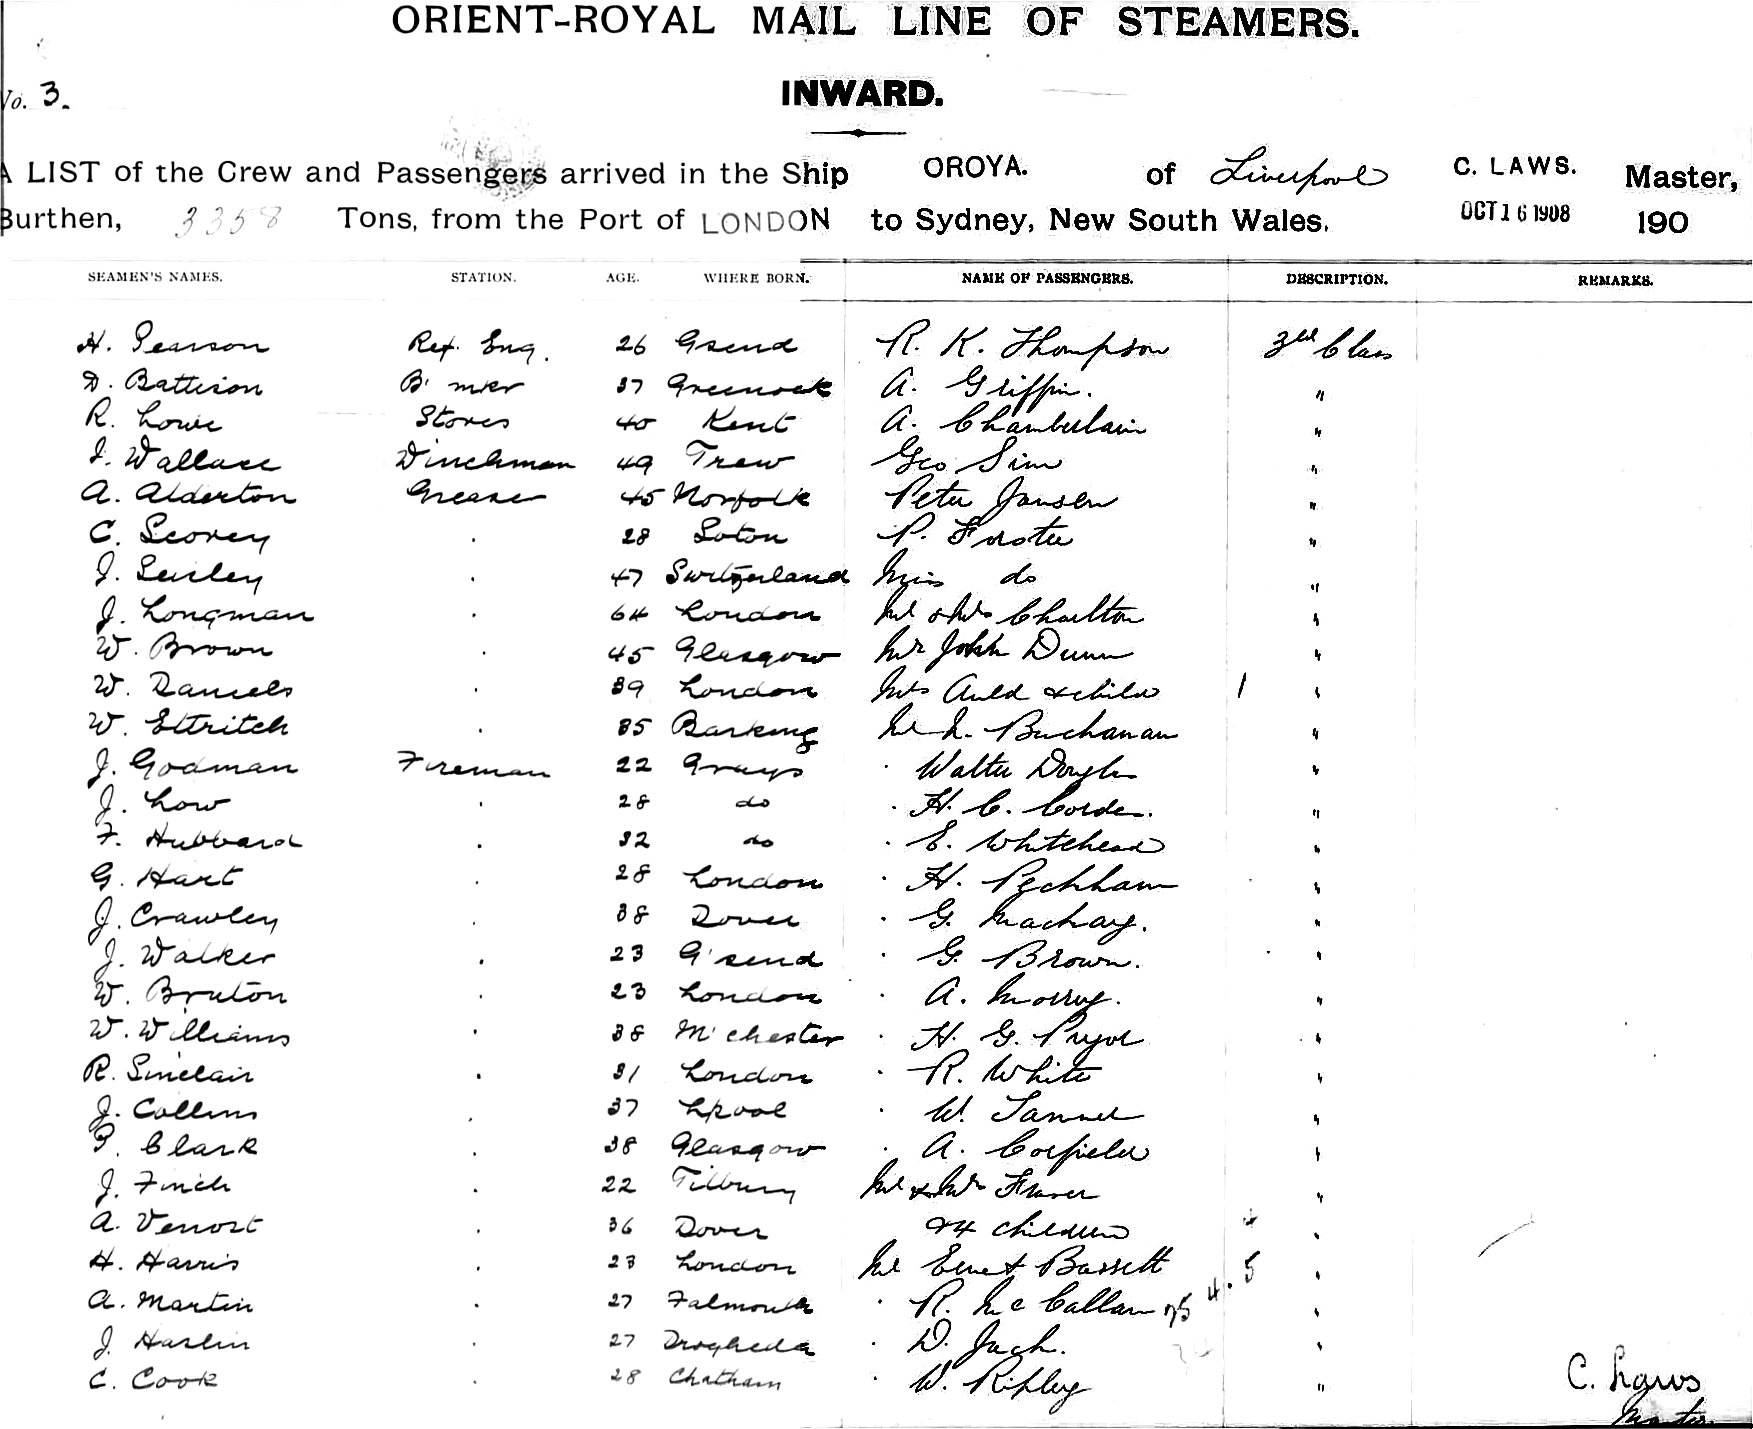 ORIENT-ROYAL MAIL LINE OF STEAMERS.
No. 3.
INWARD.
A LIST of the Crew and Passengers arrived in the Ship OROYA. of Liverpool C. LAWS. Master,
Burthen, 3358 Tons, from the Port of LONDON to Sydney, New South Wales. OCT 16 1908 190
SEAMEN'S NAMES. STATION. AGE. WHERE BORN. NAME OF PASSENGERS. DESCRIPTION. REMARKS.
H. Pearson Ref. Eng. 26 Gsend R. K. Thompson 3rd Class
D. Battison B' mkr 37 Greenock A. Griffin. "
R. Lowe Stores 40 Kent A. Chamberlain "
J. Wallace Winchman 49 Geo Sim "
A. Alderton Greaser 45 Norfolk Peter Jansen "
C. Scovey . 28 Soton P. Forster "
J. . 47 Switzerland Miss do "
J. Longman . 64 London Mr & Mrs Charlton "
W. Brown . 45 Glasgow Mr John Dunn "
W. Daniels . 39 London Mrs Auld & child 1 "
W. Ettritch . 35 Barking Buchanan "
J. Godman Fireman 22 Grays . Walter Douglas "
J. Low . 28 do . H. C. Corden. "
F. Hubbard . 32 do . E. Whitehead "
G. Hart . 28 London . H. Peckham "
J. Crawley . 38 Dover . G. Machary. "
J. Walker . 23 G'send . G. Brown. "
W. Bruton . 23 London . A. "
W. Williams . 38 M'chester . H. G. Pryor "
R. Sinclair . 31 London . R. White "
J. Collins . 37 Lpool . W. "
P. Clark . 38 Glasgow . A. Corfield "
J. Finch . 22 Tilbury Mr & Mrs Fraser "
A. Venort . 36 Dover & 4 children 4 "
H. Harris . 23 London Mr Ernest Bassett 5 "
A. Martin . 27 Falmouth . R. McCallum "
J. Harlin . 27 Drogheda . D. Jack. "
C. Cook . 28 Chatham . W. Ripley "
C. Laws
Master.